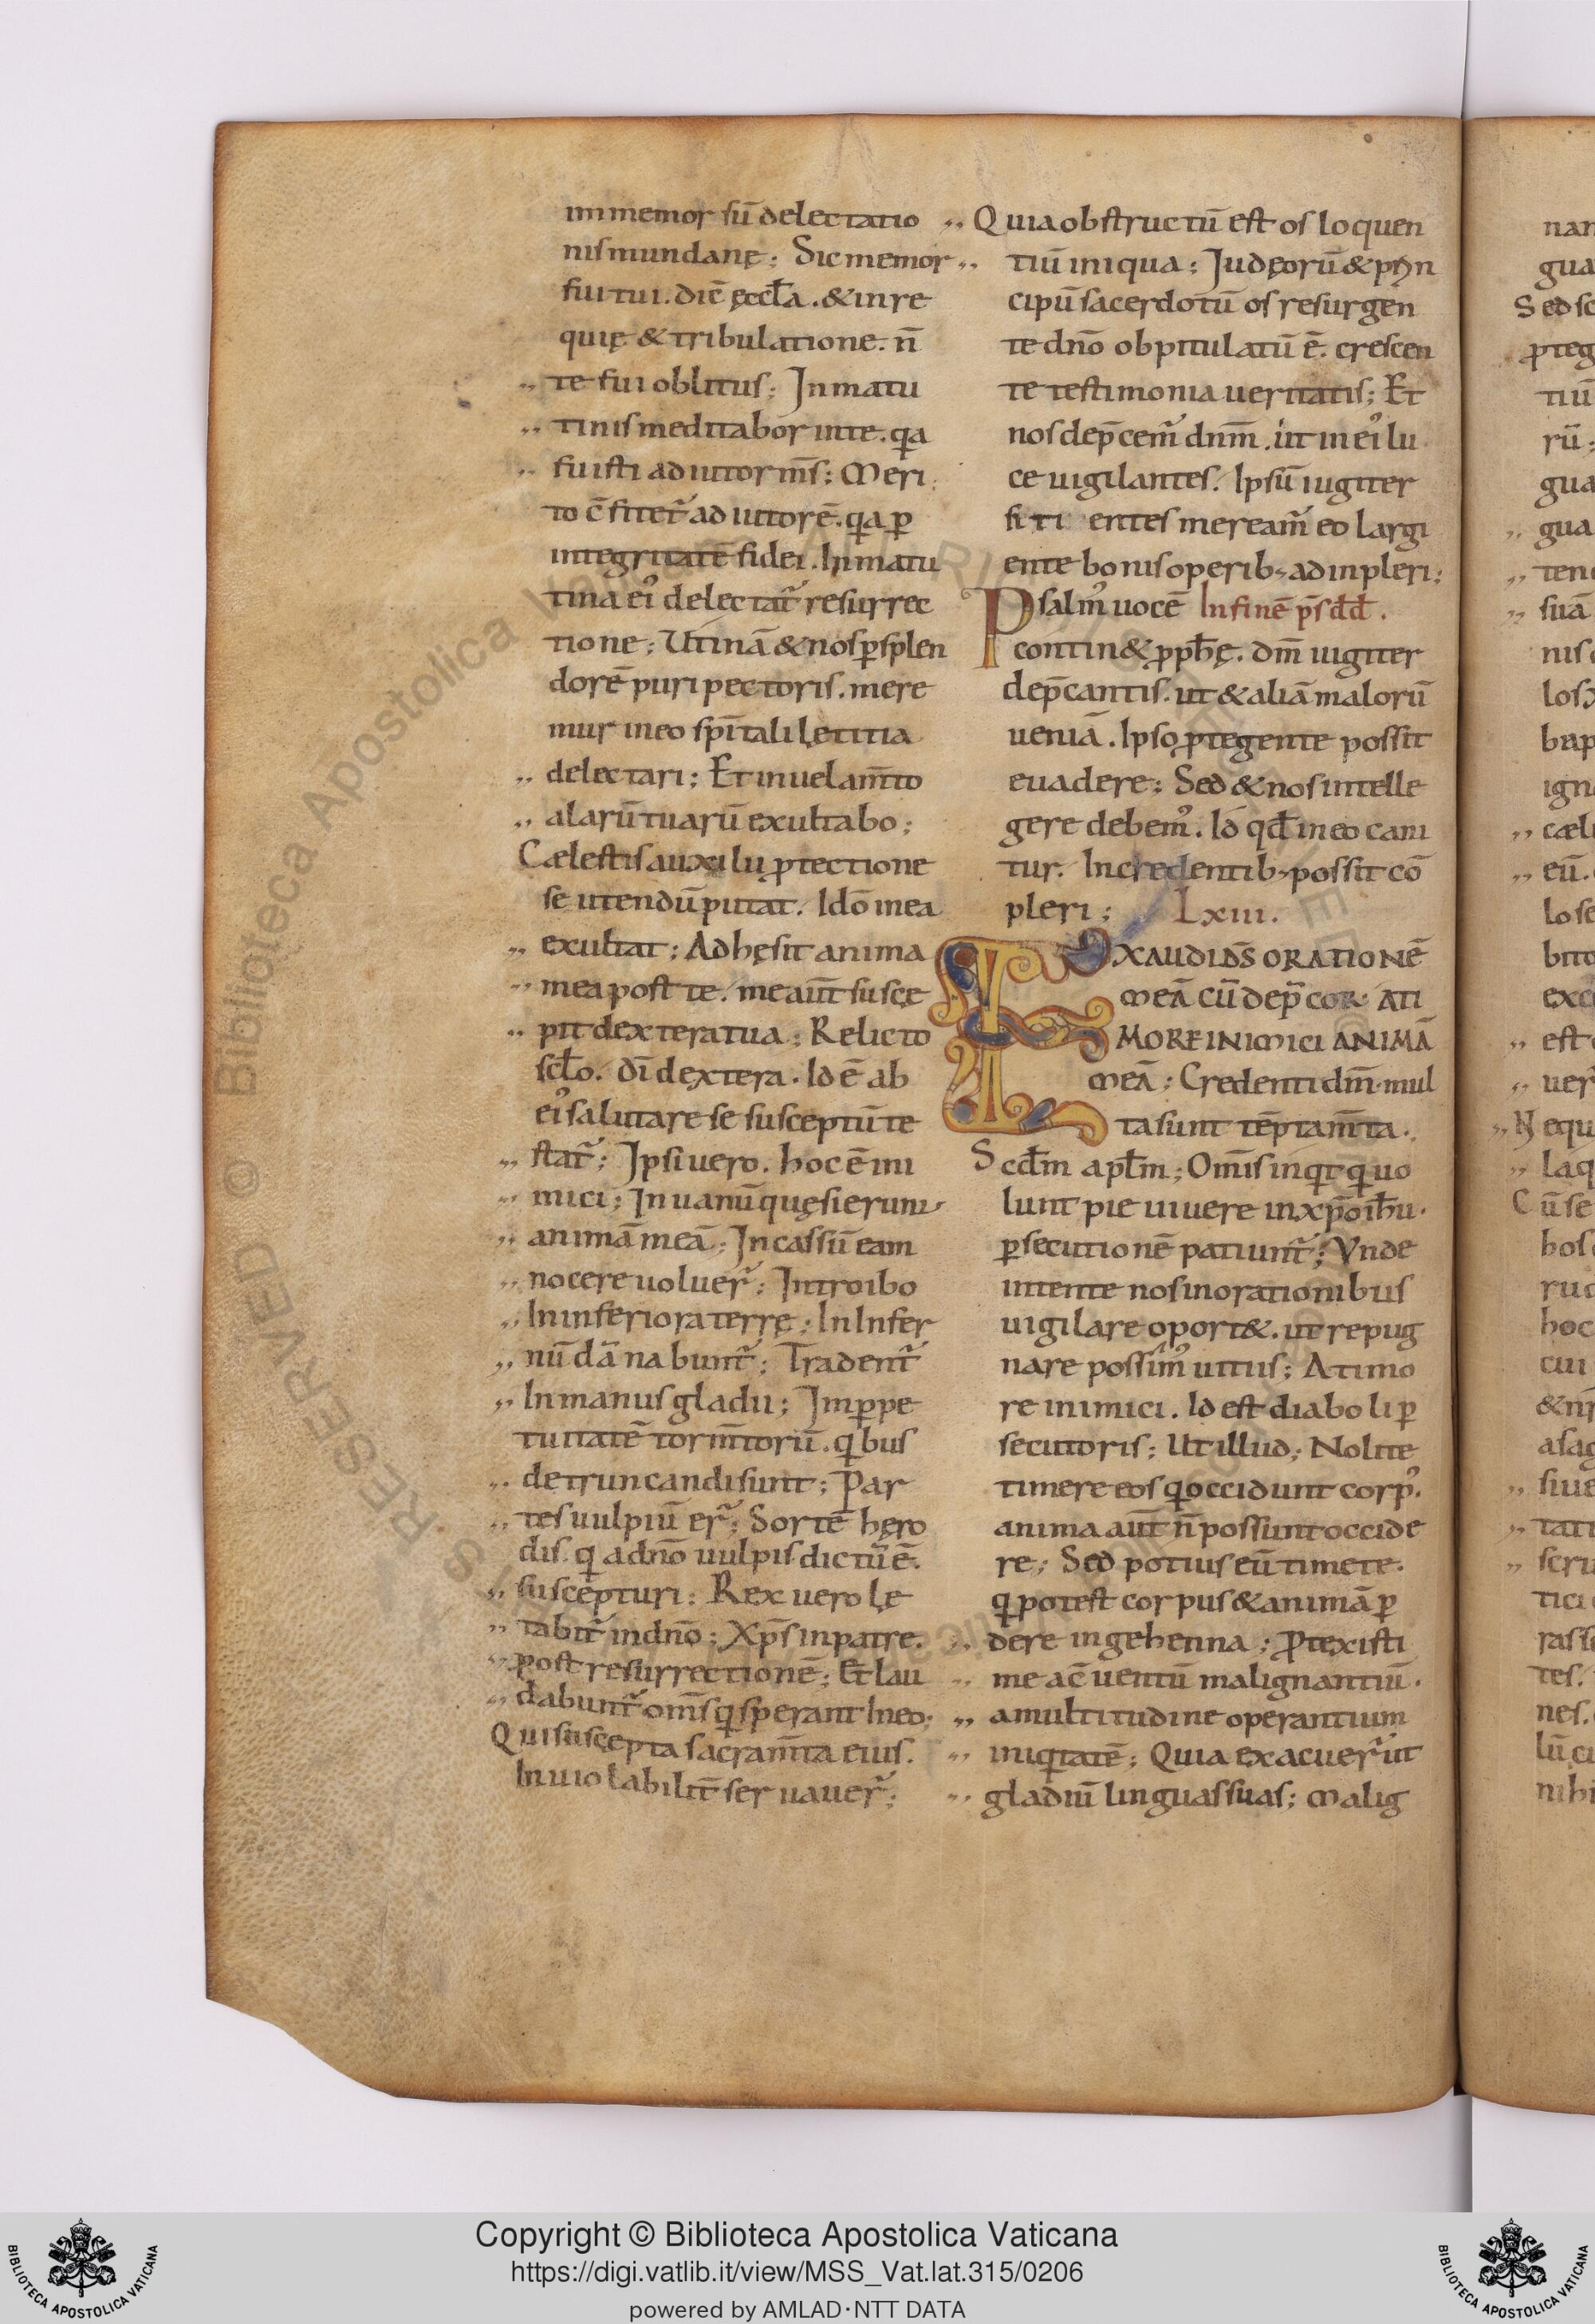 immemor sū delectatio
nis mundanę; Sic memor
fui tui. dic̄ ęccła. & in re
quię & tribulatione. n̄
„ te fui oblitus; In matu
„ tinis meditabor in te. qa
„ fuisti adiutor m̄s; Meri
to c̄fitet᷑ adiutorē. qa ꝑ
integritatē fidei. In matu
tina ei᾿ delectat᷑ resurrec
tione; Utinā & nos ꝑ splen
dorē puri pectoris. mere
mur in eo sp̄itali lętitia
„ delectari; Et in uelam̄to
„ alarū tuarū exultabo;
Cælestis auxilii ꝓtectione
se utendū putat. Idō in ea
„ exultat; Adhęsit anima
„ mea post te. me aut̄ susce
„ pit dextera tua; Relicto
scło. dī dextera. Id ē ab
ei᾿ salutare se susceptū te
„ stat᷑; Ipsi uero. hoc ē ini
„ mici; In uanū quęsierunt
„ animā meā; In cassū eam
„ nocere uoluer᷑; Introibo
„ In inferiora terrę; In Infer
„ nū dānabunt᷑; Tradent᷑
„ In manus gladii; In ꝑpe
tuitatē torm̄torū. qibus
„ detruncandi sunt; Par
„ tes uulpiū er᷑; Sortē hero
dis. qi a dnō uulpis dictū ē.
„ suscepturi; Rex uero lę
„ tabit᷑ in dnō; Xp̄s in patre.
„ post resurrectionē; Et lau
„ dabunt᷑ om̄s qi sperant In eo;
Qui suscepta sacram̄ta eius.
Inuiolabilit̄ seruauer᷑;
„ Quia obstructū est os loquen
„ tiū iniqua; Iudęorū & prin
cipū sacerdotū os resurgen
te dnō obpitulatū ē. crescen
te testimonia ueritatis; Et
nos dep̄cem᷑ dnm̄. ut in ei᾿ lu
ce uigilantes. Ipsū iugiter
sitientes meream᷑ eo largi
ente bonis operib; adinpleri;
Psalm᾿ uocē In finē ps̄ dd̄.
contin& ꝓph̄ę. dm̄ iugiter
dep̄cantis. ut & aliā malorū
ueniā. Ipso ꝓtegente possit
euadere; Sed & nos intelle
gere debem᾿. Id qđ in eo cani
tur. In credentib; possit cō
pleri; Lxiii.
EXAUDI DS̄ ORATIONĒ
MEĀ CŪ DEP̄COR. A TI
MORE INIMICI ANIMĀ
MEĀ; Credenti dm̄. mul
ta sunt tēptam̄ta.
Scđm apłm; Om̄s inqit qi uo
lunt pie uiuere in xp̄o ihū.
ꝑsecutionē patiunt᷑; Vnde
intente nos in orationibus
uigilare oport&. ut repug
nare possim᾿ uitiis; A timo
re inimici. Id est diaboli ꝑ
secutoris; Ut illud; Nolite
timere eos qi occidunt corp᾿.
anima aut̄ n̄ possunt occide
re; Sed potius eū timete.
qi potest corpus & animā ꝑ
„ dere in gehenna; Ꝓtexisti
„ me ac̄uentū malignantiū.
„ a multitudine operantium
„ iniqitatē; Quia exacuer᷑ ut
„ gladiū linguas suas; malig
Copyright © Biblioteca Apostolica Vaticana
https://digi.vatlib.it/view/MSS_Vat.lat.315/0206
powered by AMLAD·NTT DATA
BIBLIOTECA APOSTOLICA VATICANA
BIBLIOTECA APOSTOLICA VATICANA